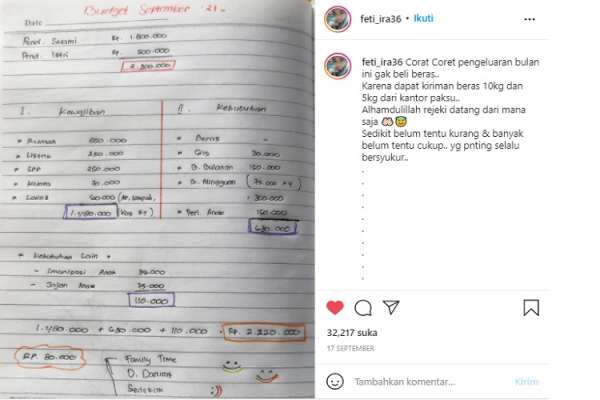 Budget September '21
Date
Pend. Suami Rp. 1.800.000
Pend. Istri Rp. 500.000
2.300.000
I. Kewajiban
II. Kebutuhan
* Beras -
* Gas
* SPP 250.000
* B. Bulanan 150.000
* B. Mingguan (75.000 x 4)
= 300.000
1.480.000
150.000
630.000
* Kebutuhan Lain *
- Imunisasi Anak
- Jajan Anak
110.000
1.480.000 + 630.000 + 110.000 = Rp. 2.220.000
RP. 80.000
Family Time
D. Darurat
Sedekah
feti_ira36 • Ikuti
feti_ira36 Corat Coret pengeluaran bulan
ini gak beli beras..
Karena dapat kiriman beras 10kg dan
5kg dari kantor paksu..
Alhamdulillah rejeki datang dari mana
saja 🤲😇
Sedikit belum tentu kurang & banyak
belum tentu cukup.. yg pnting selalu
bersyukur..
.
.
.
.
.
.
.
32,217 suka
17 SEPTEMBER
Tambahkan komentar...
Kirim